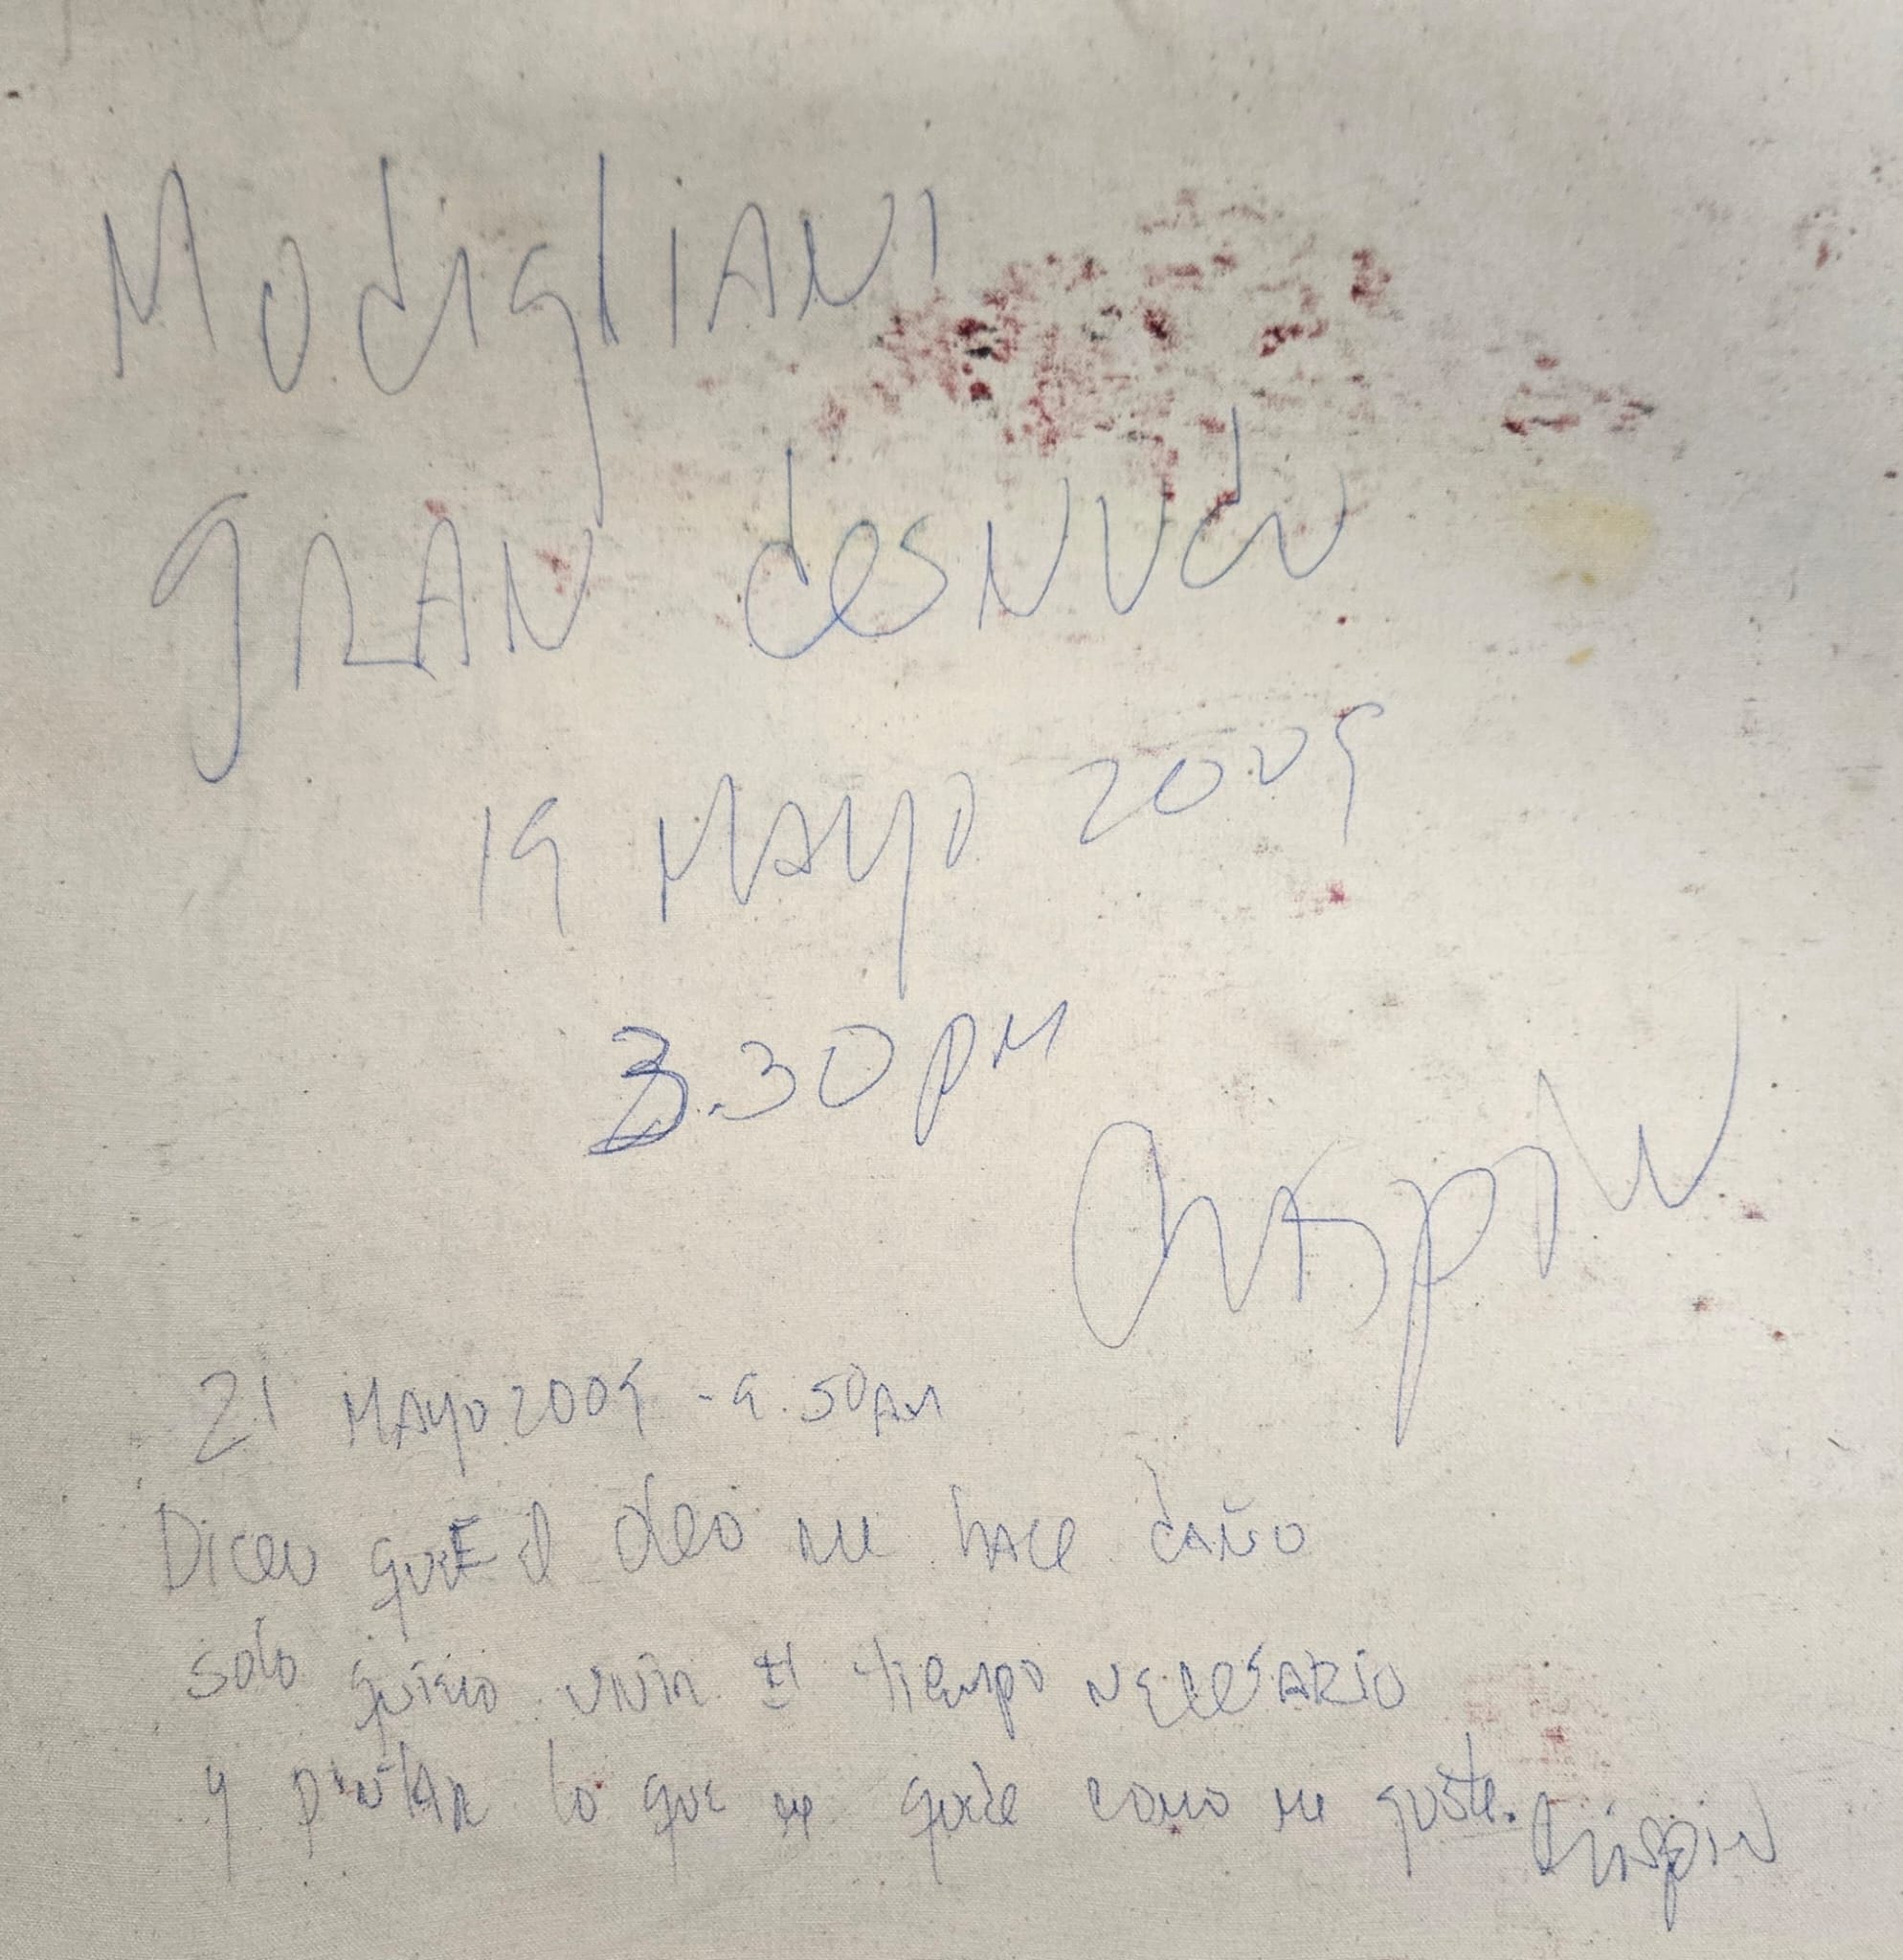 Modigliani
gran desnudo
19 Mayo 2009
3.30 pm
Crispin
21 Mayo 2009 - 9.50 AM
Dicen que el oleo me hace daño
solo quiero vivir el tiempo necesario
y pintar lo que me quede como me guste.
Crispin